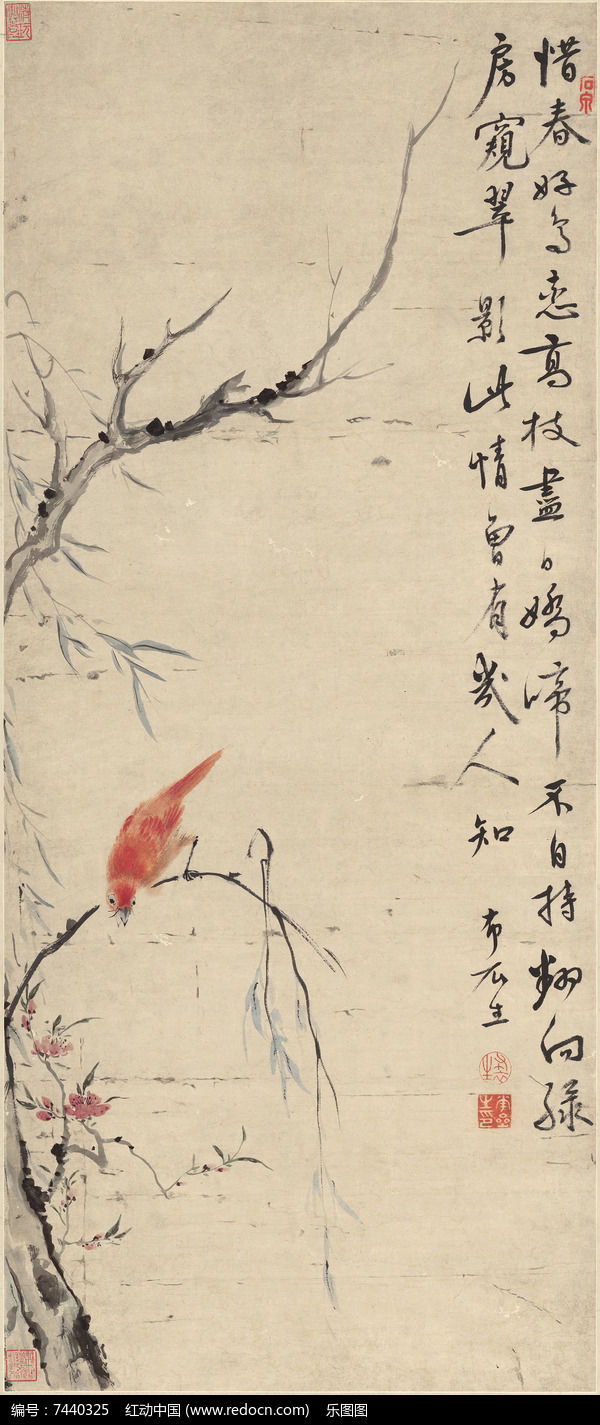 惜春好鳥戀高枝盡日嬌啼不自持翻向綠
房窺翠影此情曾有幾人知 布衣生
编号：7440325 红动中国 (www.redocn.com) 乐图图